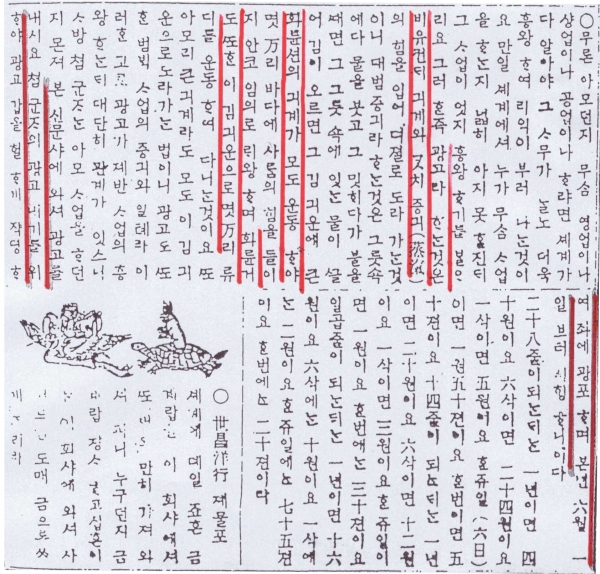 ○무론 아모던지 무슴 영업이나
샹업이나 공업이나 ᄒᆞ랴면 셰계가
다 알아야 그 ᄉᆞ무가 날노 더욱
흥왕 ᄒᆞ여 리익이 부러 나ᄂᆞᆫ것이
요 만일 셰계에셔 누가 무슴 ᄉᆞ업
을 ᄒᆞᄂᆞᆫ지 넓히 아지 못ᄒᆞᆯ진ᄃᆡ
그 ᄉᆞ업이 엇지 흥왕 ᄒᆞ기를 ᄇᆞᆯ으
리요 그러 ᄒᆞᆫ즉 광고라 ᄒᆞᄂᆞᆫ것은
비유컨ᄃᆡ 긔계와 ᄀᆞᆺ치 증긔(蒸滊)
의 힘을 입어 뎌졀로 도라 가ᄂᆞᆫ것
이니 대범 증긔라 ᄒᆞᄂᆞᆫ것은 그릇속
에다 물을 붓고 그 밋히다가 불을
ᄯᅢ면 그 그릇 속에 잇ᄂᆞᆫ 물이 ᄭᅳᆯ
어 김이 오르면 그 김긔운에 큰
화륜션의 긔계가 모도 운동 ᄒᆞ야
몃 万리 바다에 사ᄅᆞᆷ의 힘을 들이
지 안코 임의로 ᄅᆡ왕 ᄒᆞ며 화륜거
도 ᄯᅩᄒᆞᆫ 이 김긔운으로 몃万리 륙
디를 운동 ᄒᆞ여 다니ᄂᆞᆫ것이요 ᄯᅩ
아모리 큰긔계라도 모도 이 김긔
운으로 노라가ᄂᆞᆫ 법이니 광고도 ᄯᅩ
ᄒᆞᆫ 범ᄇᆡᆨ ᄉᆞ업의 증긔와 일톄라 이
러ᄒᆞᆫ 고로 광고가 제반 ᄉᆞ업의 흥
왕 ᄒᆞᄂᆞᆫᄃᆡ 대단히 관계가 잇스니
ᄉᆞ방 쳠 군ᄌᆞᄂᆞᆫ 아모 ᄉᆞ업을 ᄒᆞ던
지 몬져 본 신문샤에 와셔 광고를
내시요 쳠 군ᄌᆞ의 광고 내기를 위
ᄒᆞ야 광고 갑을 헐ᄒᆞ게 작뎡 ᄒᆞ
여 좌에 광포 ᄒᆞ며 본년 六월 一
일 브러 시ᄒᆡᆼ ᄒᆞᆸᄂᆞ이다
二十八줄이 되ᄂᆞᆫᄃᆡᄂᆞᆫ 一년이면 四
十원이요 六삭이면 二十四원이요
一삭이면 五원이요 ᄒᆞᆫ쥬일(六日)
이면 一원五十젼이요 ᄒᆞᆫ번이면 五
十젼이요 十四줄이 되ᄂᆞᆫᄃᆡᄂᆞᆫ 一년
이면 二十원이요 六삭이면 十二원
이요 一삭이면 三원이요 ᄒᆞᆫ쥬일이
면 一원이요 ᄒᆞᆫ번에ᄂᆞᆫ 三十젼이요
일곱줄이 되ᄂᆞᆫᄃᆡᄂᆞᆫ 一년이면 十六
원이요 六삭에ᄂᆞᆫ 十원이요 一삭에
ᄂᆞᆫ 二원이요 ᄒᆞᆫ쥬일에ᄂᆞᆫ 七十五젼
이요 ᄒᆞᆫ번에ᄂᆞᆫ 二十젼이라
○ 世昌洋行 졔물포
셰계에 뎨일 죠흔 금
계랍을 이 회샤에셔
ᄯᅩ 만히 가져 와
셔 니 누구던지 금
계랍 쟝ᄉᆞ ᄒᆞ고십흔이
ᄂᆞᆫ 이 회샤에 와셔 사
도매 금으로